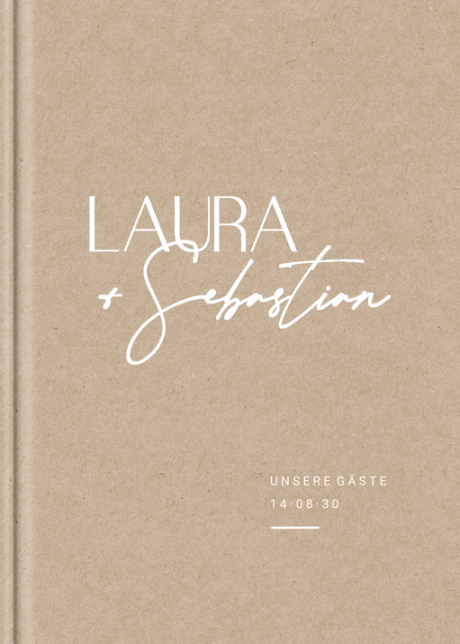 LAURA
+ Sebastian
UNSERE GÄSTE
14·08·30